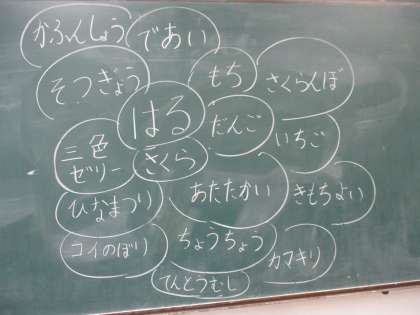 かふんしょう
であい
そつぎょう
もち
さくらんぼ
はる
だんご
いちご
三色
ゼリー
さくら
あたたかい
きもちよい
ひなまつり
コイのぼり
ちょうちょう
カマキリ
てんとうむし